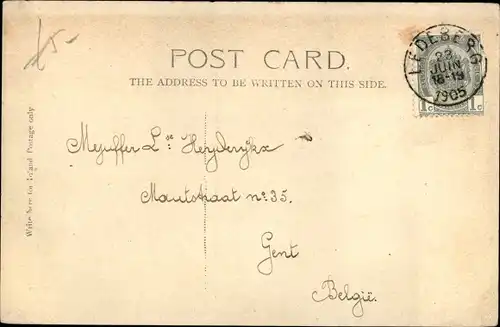 £5-
POST CARD.
THE ADDRESS TO BE WRITTEN ON THIS SIDE.
LEDEBERG
22
JUIN
18-19
1905
1c 1c
Write here for Inland Postage only
Mejuffer Lse Heyderijkx
Mautstraat no 35.
Gent
België.